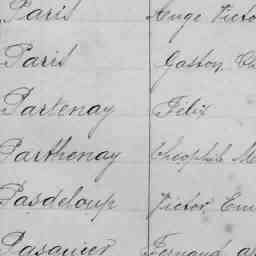 Paris Ange Victo
Paris Gaston Ch
Partenay Félix
Parthenay Théophile M
Pasdeloup Victor Em
Pasquier Fernand